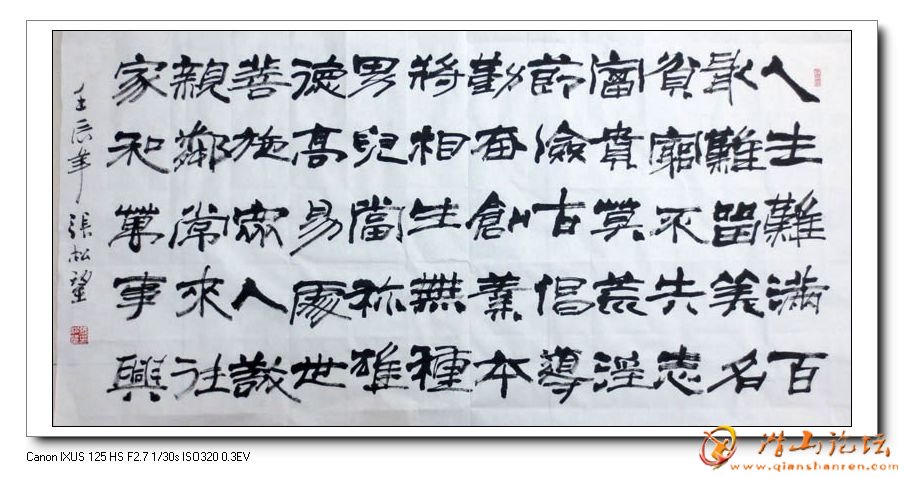 人生難滿百
最難留美名
貧窮不失志
富貴莫荒淫
節儉古倡導
勤奮創業本
將相生無種
男兒當称雄
德高易處世
善施眾人
親鄰常來往
家和萬事興
壬辰年 張松望
Canon IXUS 125 HS F2.7 1/30s ISO320 0.3EV
潜山论坛
www.qianshanren.com